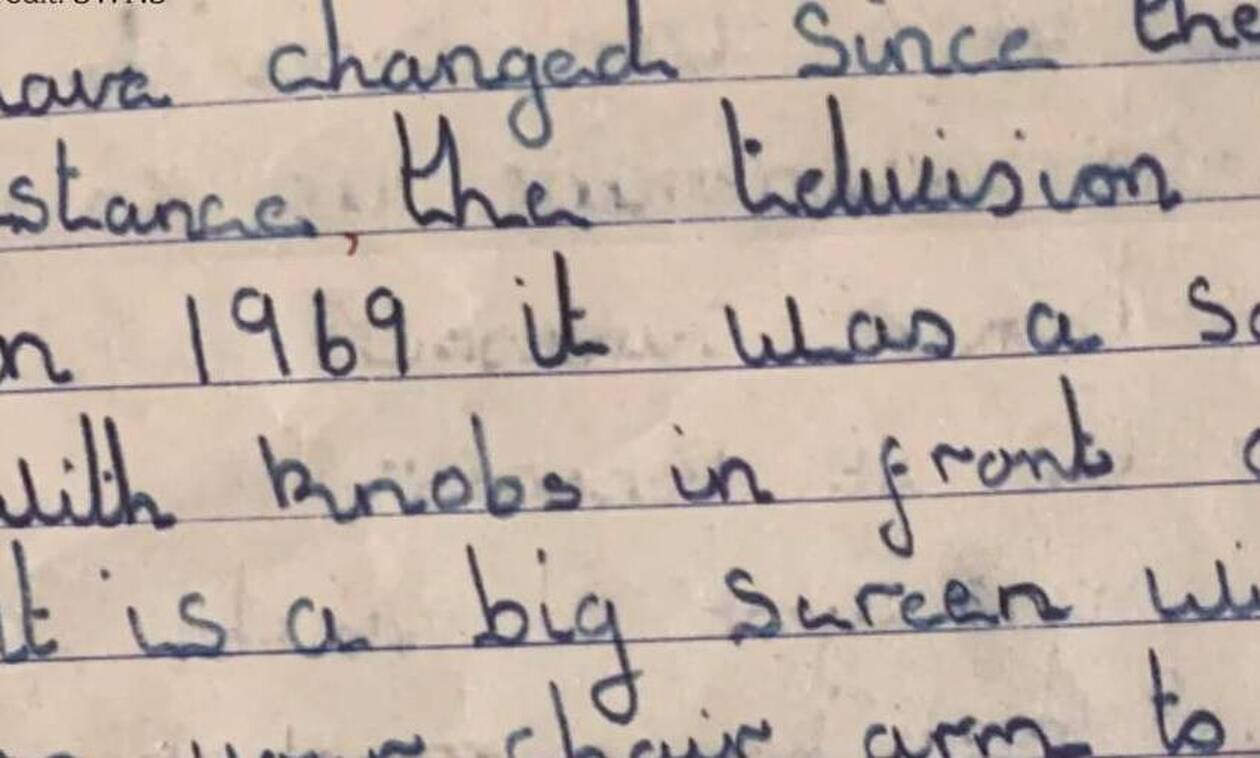 have changed since the
stance, the television
n 1969 it was a s
with knobs in front
it is a big screen wi
your chair arm to